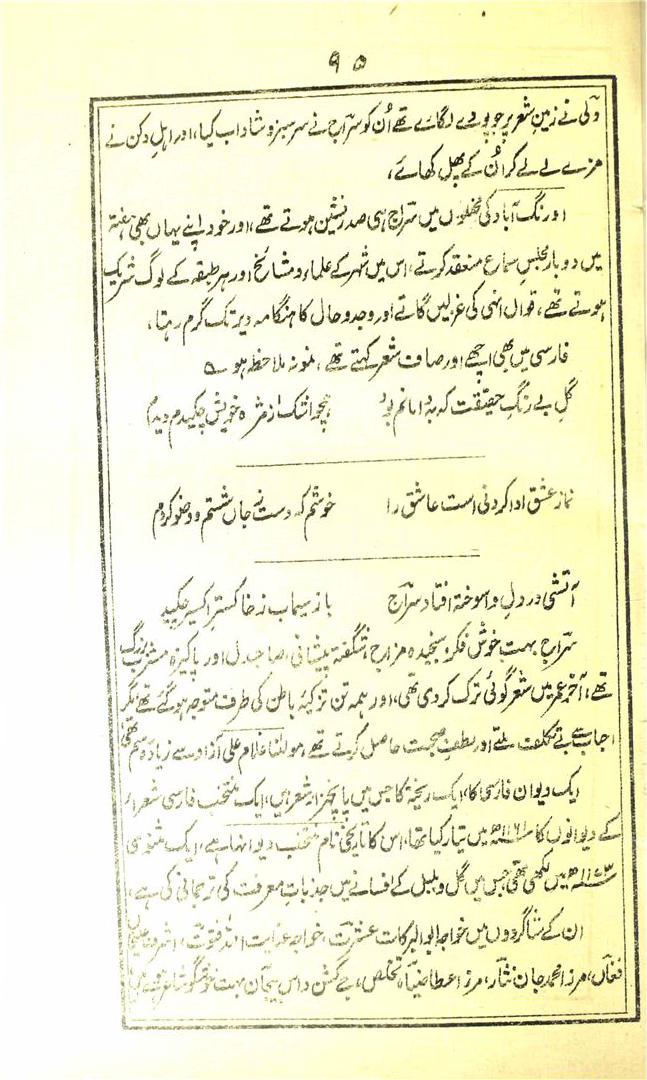 ۹۵
ولی نے زمین شعر پر جو پودے لگائے تھے اُن کو سراج نے سرسبز و شاداب کیا، اور اہل دکن نے
مزے لے لے کر اُن کے پھل کھائے،
اورنگ آباد کی محفلوں میں سراج ہی صدر نشین ہوتے تھے، اور خود اپنے یہاں بھی ہفتہ
میں دو بار مجلس سماع منعقد کرتے، اس میں شہر کے علماء و مشائخ اور ہر طبقہ کے لوگ شریک
ہوتے تھے، قوال انہی کی غزلیں گاتے اور وجد و حال کا ہنگامہ دیر تک گرم رہتا،
فارسی میں بھی اچھے اور صاف شعر کہتے تھے، نمونہ ملاحظہ ہو ؎
گل بے رنگ حقیقت کہ بدامانم بود ہمچو اشک از مژہ خویش چکیدم دیدم
نماز عشق ادا کردنی است عاشق را خوشم کہ دست ز جاں شستم و وضو کردم
آتشی در دل وا سوختہ افتاد سراج باز سیماب ز خاکستر اکسیر چکید
سراج بہت خوش فکر، سنجیدہ مزاج، شگفتہ پیشانی، صاحب دل اور پاکیزہ مشرب بزرگ
تھے، آخر عمر میں شعر گوئی ترک کر دی تھی، اور ہمہ تن تزکیۂ باطن کی طرف متوجہ ہو گئے تھے، مگر
احباب سے بے تکلف ملتے اور لطف صحبت حاصل کرتے تھے، مولٰنا غلام علی آزاد سے زیادہ رسم تھی،
ایک دیوان فارسی کا، ایک ریختہ کا جس میں پانچہزار شعر ہیں، ایک منتخب فارسی شعراء
کے دیوانوں کا ۱۱۶۱ھ میں تیار کیا تھا، اس کا تاریخی نام منتخب دیوانہا ہے، ایک مثنوی
۱۱۷۳ھ میں لکھی تھی جس میں گل و بلبل کے افسانے میں جذبات معرفت کی ترجمانی کی ہے،
ان کے شاگردوں میں خواجہ ابوالبرکات عشرت، خواجہ عنایت اللہ فتوت، اشرف علیخاں
فغاں، مرزا محمد جان نثار، مرزا عطا ضیاء تخلص، جے کشن داس بیجان بہت خوشگو شاعر